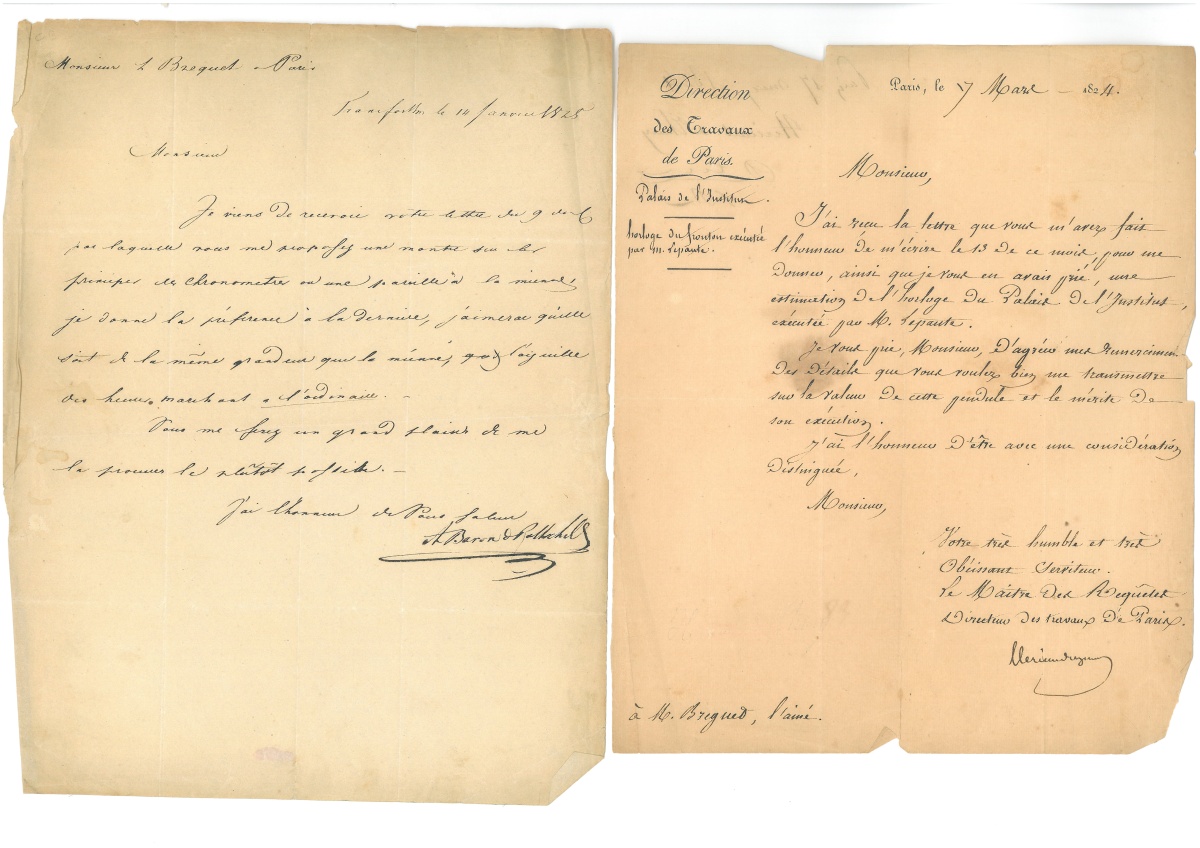 Monsieur L Breguet à Paris
Francfort s/m le 14 Janvier 1825
Monsieur
Je viens de recevoir votre lettre du 9 de
par laquelle vous me proposez une montre sur les
principes des chronometres ou une pareille à la mienne,
je donne la préférence à la derniere, j'aimerai qu'elle
soit de la même grandeur que la mienne, que l'aiguille
des heures marchant à l'ordinaire. —
Vous me ferez un grand plaisir de me
la procurer le plûtôt possible. —
J'ai l'honneur de Vous saluer
A Baron de Rothschild
Direction
des Travaux
de Paris.
Palais de l'Institut.
horloge du fronton exécutée
par M. Lepaute.
Paris, le 17 Mars 1824.
Monsieur,
J'ai reçu la lettre que vous m'avez fait
l'honneur de m'écrire le 13 de ce mois, pour me
donner, ainsi que je vous en avais prié, une
estimation de l'horloge du Palais de l'Institut,
exécutée par M. Lepaute.
Je vous prie, Monsieur, d'agréer mes remerciemens
des détails que vous voulez bien me transmettre
sur la valeur de cette pendule et le mérite de
son exécution.
J'ai l'honneur d'être avec une considération
distinguée,
Monsieur,
Votre très humble et très
Obéissant Serviteur.
Le Maître des Requêtes
Directeur des travaux de Paris.
à M. Breguet, l'ainé.